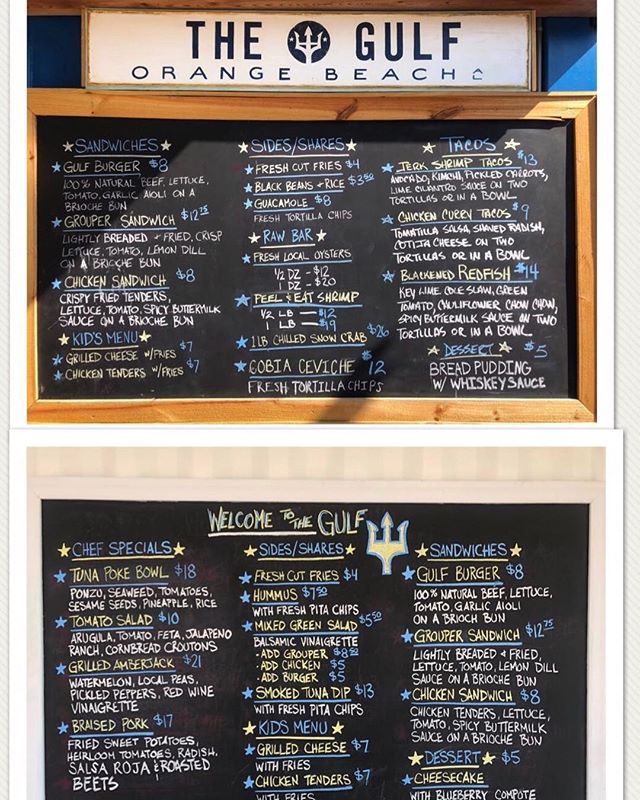 THE GULF
ORANGE BEACH
SANDWICHES
GULF BURGER $8
100% NATURAL BEEF, LETTUCE,
TOMATO, GARLIC AIOLI ON A
BRIOCHE BUN
GROUPER SANDWICH $12.75
LIGHTLY BREADED + FRIED, CRISP
LETTUCE, TOMATO, LEMON DILL
ON A BRIOCHE BUN
CHICKEN SANDWICH $8
CRISPY FRIED TENDERS,
LETTUCE, TOMATO, SPICY BUTTERMILK
SAUCE ON A BRIOCHE BUN
KID'S MENU
GRILLED CHEESE W/FRIES $7
CHICKEN TENDERS W/FRIES $7
SIDES/SHARES
FRESH CUT FRIES $4
BLACK BEANS + RICE $3.50
GUACAMOLE $8
FRESH TORTILLA CHIPS
RAW BAR
FRESH LOCAL OYSTERS
1/2 DZ - $12
1 DZ - $20
PEEL & EAT SHRIMP
1/2 LB — $12
1 LB — $19
1 LB CHILLED SNOW CRAB $26
COBIA CEVICHE $12
FRESH TORTILLA CHIPS
TACOS
JERK SHRIMP TACOS $13
AVOCADO, KIMCHI, PICKLED CARROTS,
LIME CILANTRO SAUCE ON TWO
TORTILLAS OR IN A BOWL
CHICKEN CURRY TACOS $9
TOMATILLA SALSA, SHAVED RADISH,
COTIJA CHEESE ON TWO
TORTILLAS OR IN A BOWL
BLACKENED REDFISH $14
KEY LIME COLE SLAW, GREEN
TOMATO, CAULIFLOWER CHOW CHOW,
SPICY BUTTERMILK SAUCE ON TWO
TORTILLAS OR IN A BOWL
DESSERT $5
BREAD PUDDING
W/ WHISKEY SAUCE
WELCOME TO THE GULF
CHEF SPECIALS
TUNA POKE BOWL $18
PONZU, SEAWEED, TOMATOES,
SESAME SEEDS, PINEAPPLE, RICE
TOMATO SALAD $10
ARUGULA, TOMATO, FETA, JALAPENO
RANCH, CORNBREAD CROUTONS
GRILLED AMBERJACK $21
WATERMELON, LOCAL PEAS,
PICKLED PEPPERS, RED WINE
VINAIGRETTE
BRAISED PORK $17
FRIED SWEET POTATOES,
HEIRLOOM TOMATOES, RADISH,
SALSA ROJA & ROASTED
BEETS
SIDES/SHARES
FRESH CUT FRIES $4
HUMMUS $7.50
WITH FRESH PITA CHIPS
MIXED GREEN SALAD $5.50
BALSAMIC VINAIGRETTE
· ADD GROUPER $8
· ADD CHICKEN $5
· ADD BURGER $5
SMOKED TUNA DIP $13
WITH FRESH PITA CHIPS
KIDS MENU
GRILLED CHEESE $7
WITH FRIES
CHICKEN TENDERS $7
WITH FRIES
SANDWICHES
GULF BURGER $8
100% NATURAL BEEF, LETTUCE,
TOMATO, GARLIC AIOLI
ON A BRIOCH BUN
GROUPER SANDWICH $12.75
LIGHTLY BREADED + FRIED,
LETTUCE, TOMATO, LEMON DILL
SAUCE ON A BRIOCH BUN
CHICKEN SANDWICH $8
CHICKEN TENDERS, LETTUCE,
TOMATO, SPICY BUTTERMILK
SAUCE ON A BRIOCHE BUN
DESSERT $5
CHEESECAKE
WITH BLUEBERRY COMPOTE